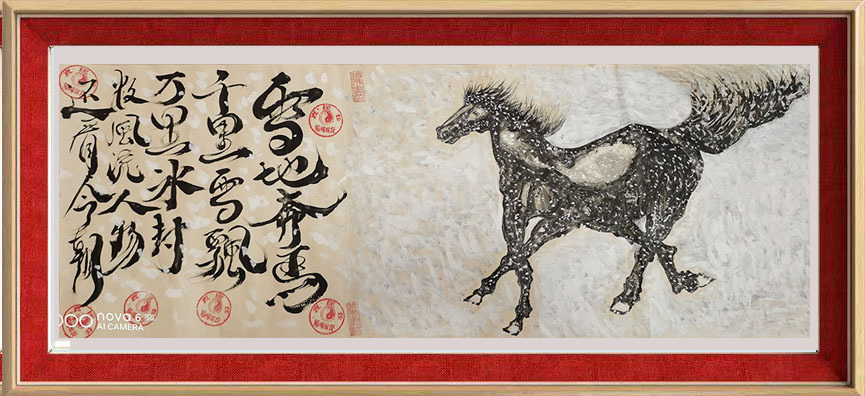 雪地奔馬
千里雪飄
万里冰封
数風流人物
还看今朝
nova 6 5G
AI CAMERA